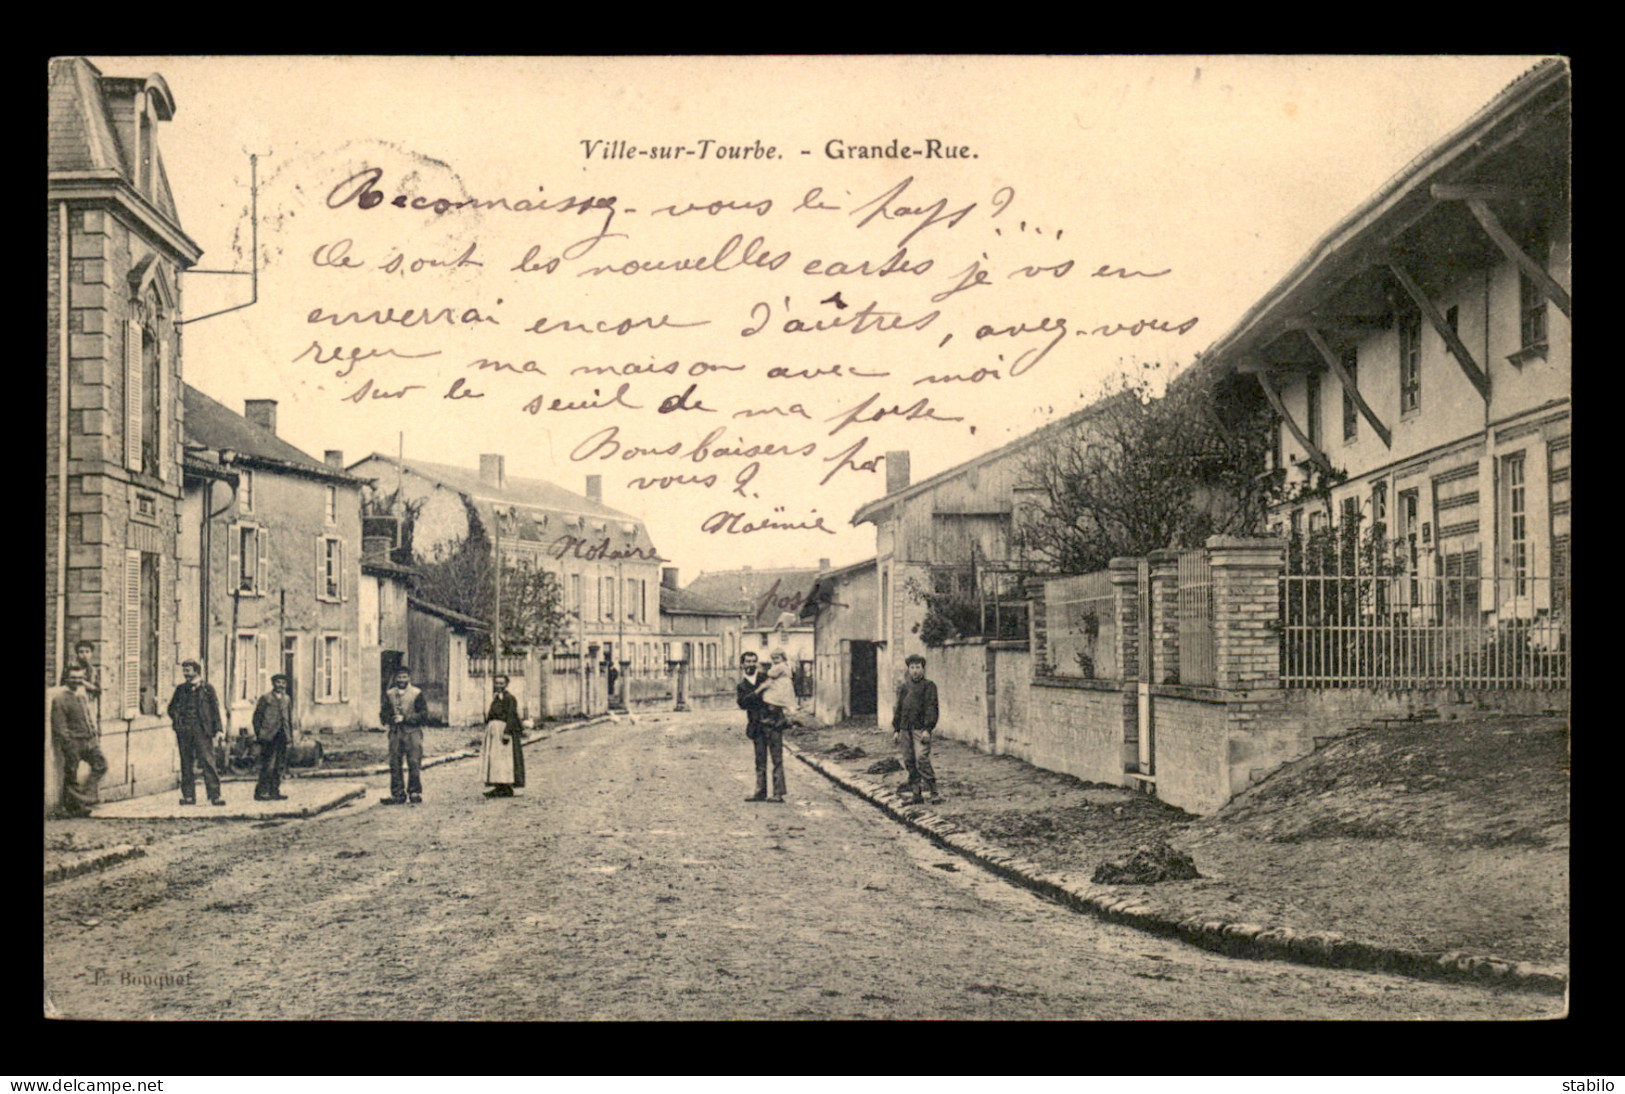 Ville-sur-Tourbe. - Grande-Rue.
Reconnaissez-vous le pays ?...
Ce sont les nouvelles cartes je vs en
enverrai encore d'autres, avez-vous
reçu ma maison avec moi
sur le seuil de ma porte.
Bons baisers pr
vous 2
Noëmie
Notaire
poste
E. Bouquet
delcampe.net
stabilo